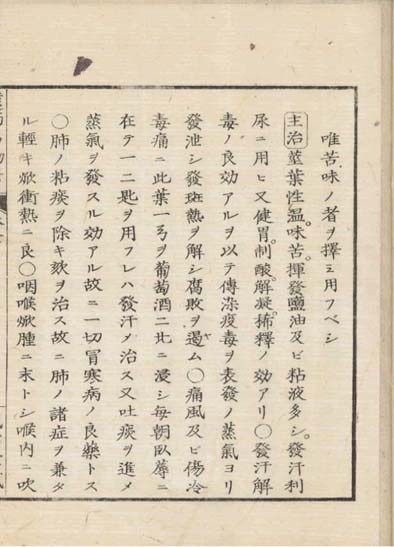 唯苦味ノ者ヲ擇ミ用フベシ
主治 莖葉性温。味苦。揮發鹽油及ビ粘液多シ。發汗利
尿ニ用ヒ又健胃。制酸。解凝。稀釋ノ効アリ〇發汗解
毒ノ良効アルヲ以テ傳染疫毒ヲ表發ノ蒸氣ヨリ
發泄シ發斑熱ヲ解シ腐敗ヲ遏ム〇痛風及ビ傷冷
毒痛ニ此葉一弓ヲ葡萄酒二
浸シ毎朝臥蓐ニ
在テ一二匙ヲ用フレハ發汗メ治ス又吐痰ヲ進メ
蒸氣ヲ發スル効アル故ニ一切冐寒病ノ良藥トス
〇肺ノ粘痰ヲ除キ欬ヲ治ス故ニ肺ノ諸症ヲ兼タ
ル輕キ焮衝熱ニ良〇咽喉焮腫ニ末トシ喉内ニ吹